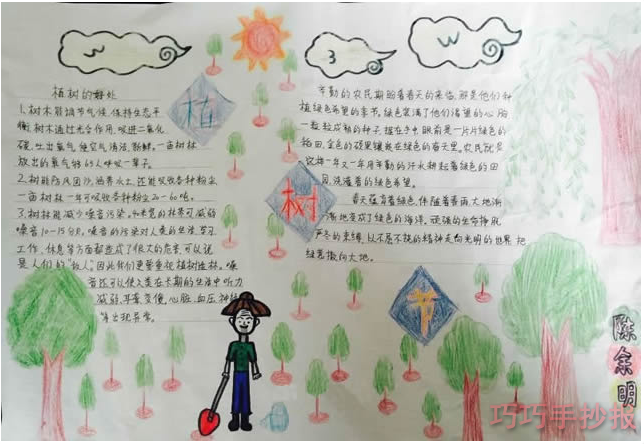 植树的好处
1.树木能调节气候,保持生态平
衡,树木通过光合作用,吸进二氧化
碳,吐出氧气,使空气清洁、新鲜。一亩树林
放出的氧气够65人呼吸一辈子。
2.树能防风固沙,涵养水土,还能吸收各种粉尘,
一亩树林一年可吸收各种粉尘20—60吨。
3.树林能减少噪音污染。40米宽的林带可减弱
噪音10—15分贝。噪音的污染对人类的生活、学习、
工作、休息等方面都造成了很大的危害,可以说
是人们的“敌人”。因此我们更要重视植树造林。噪
音还可以使人类在长期的生活中听力
减弱、
心脏、血压、神经
等出现异常。
植
树
节
辛勤的农民期盼着春天的来临,那是他们种
植绿色希望的季节,绿色装满了他们渴望的心胸
一粒粒成熟的种子,握在手中,眼前是一片片绿色的
稻田,金色的硕果镶嵌在绿色的春天里。农民就是
这样一年又一年用辛勤的汗水耕耘着绿色的田
园,浇灌着绿色希望。
春天蕴育着绿色,伴随着春雨,大地渐
渐地变成了绿色的海洋。顽强的生命挣脱
严冬的束缚,以不屈不挠的精神走向光明的世界,把
绿意撒向大地。
陈余明
巧巧手抄报